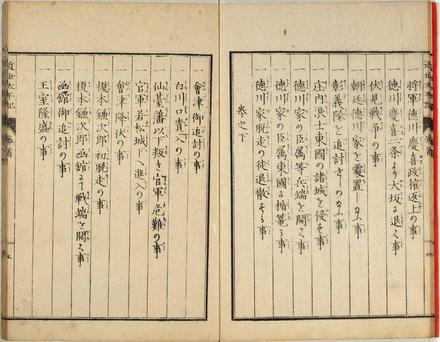 一 将軍徳川慶喜政権返上の事
一 徳川慶喜二条より大坂に退く事
一 伏見戦争の事
一 朝廷徳川家を処置し玉ふ事
一 彰義隊を追討し玉ふ事
一 庄内浪士東國の諸城を侵す事
一 徳川家の臣属等兵端を開く事
一 徳川家の臣属東國に楯籠る事
一 徳川家脱走の徒退散する事
巻之下
一 會津御追討の事
一 白川口責の事
一 仙䑓藩以叛き官軍危難の事
一 官軍若松城へ進入の事
一 會津降伏の事
一 榎本鎌次郎初脱走の事
一 榎本鎌次郎函館にて戦端を開く事
一 函館御追討の事
一 王室隆盛の事